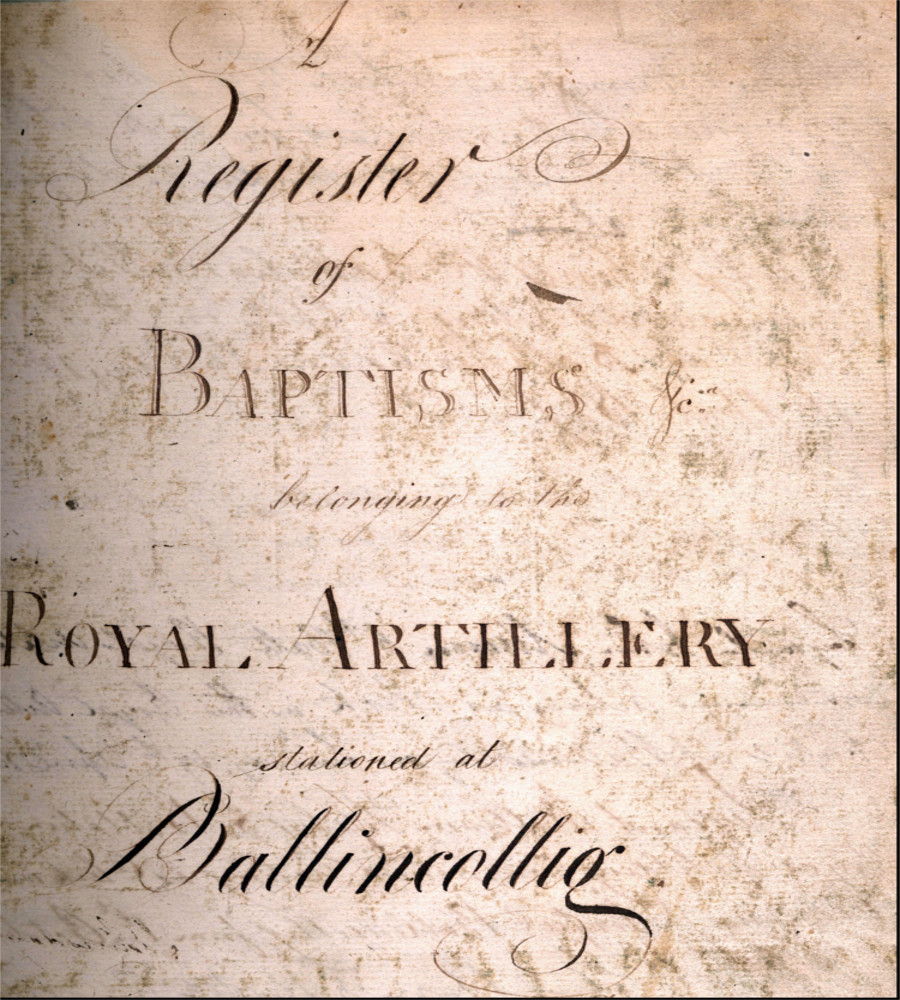 A
Register
of
BAPTISMS &c.a
belonging to the
ROYAL ARTILLERY
stationed at
Ballincollig